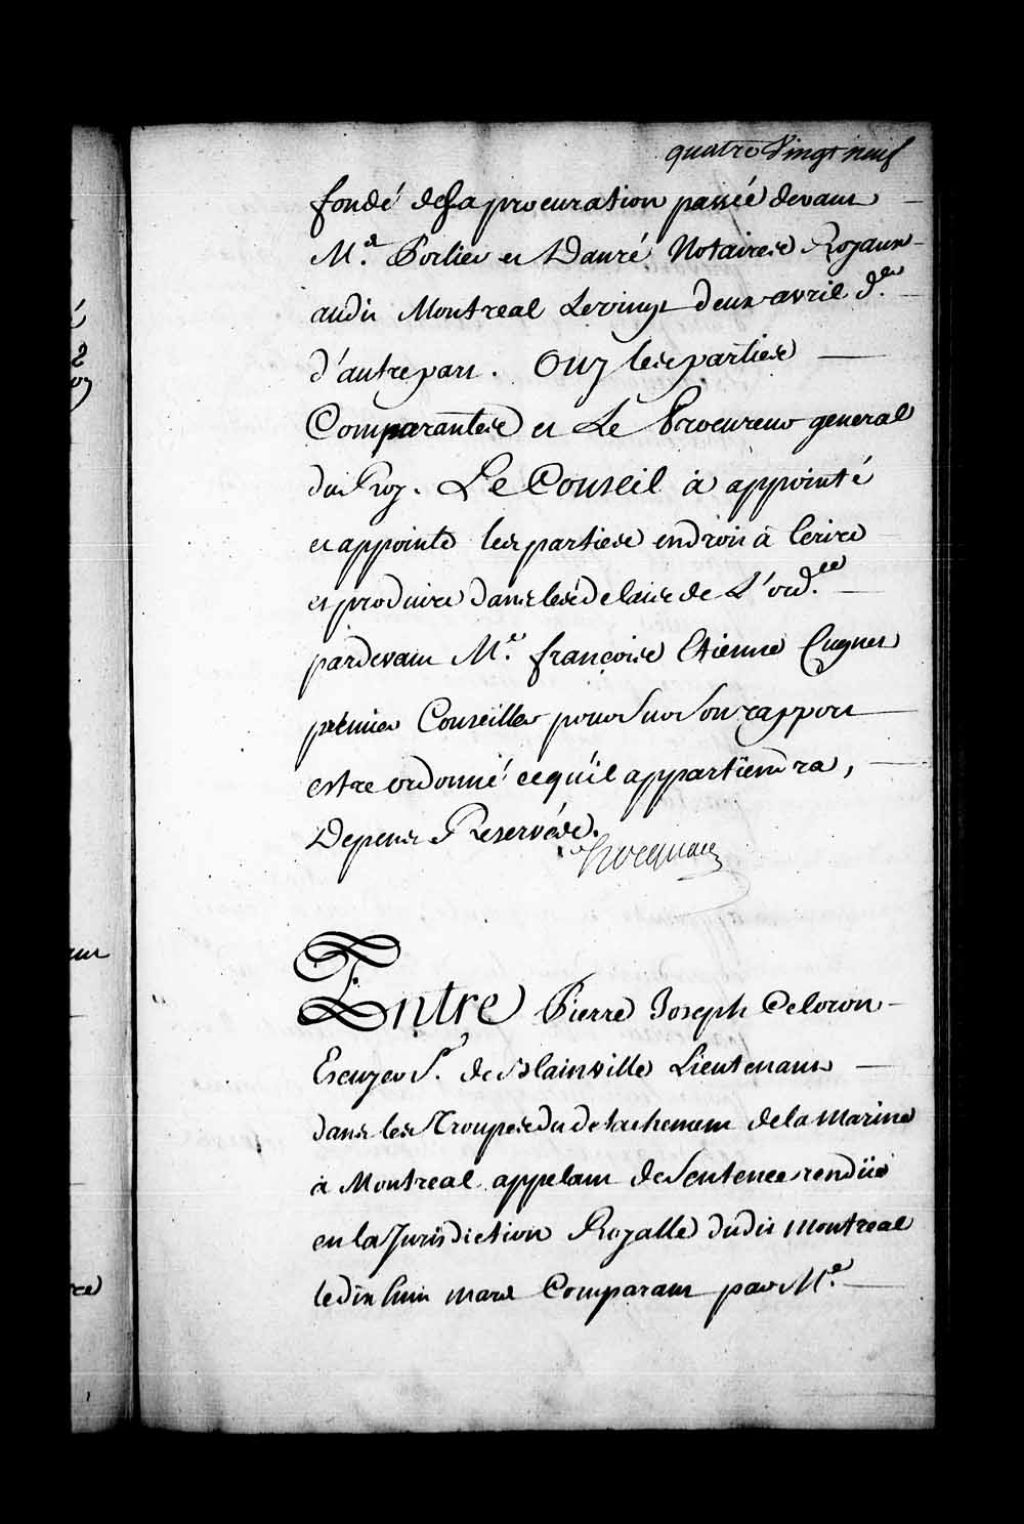 quatre Vingt neuf
fondé de Sa procuration passée devant
Me. Porlier et Danré Notaires Royaux
audit Montreal Le vingt deux avril der.
d'autre part. Ouy les parties
Comparantes et Le Procureur general
du Roy. Le Conseil à appointé
et appointe les parties en droit à Ecrire
et produire dans les délais de L'ordce.
pardevant Me. françois Etienne Cugnet
premier Conseiller pour Sur Son rapport
estre ordonné ce qu'il appartiendra,
Depens Reservés.
hocquart
Entre Pierre Joseph Celoron
Escuyer Sr. de Blainville Lieutenant
dans les Troupes du detachement de la marine
à Montreal appelant de Sentence rendüe
en la Jurisdiction Royalle dudit Montreal
le dix huit mars Comparant par Me.